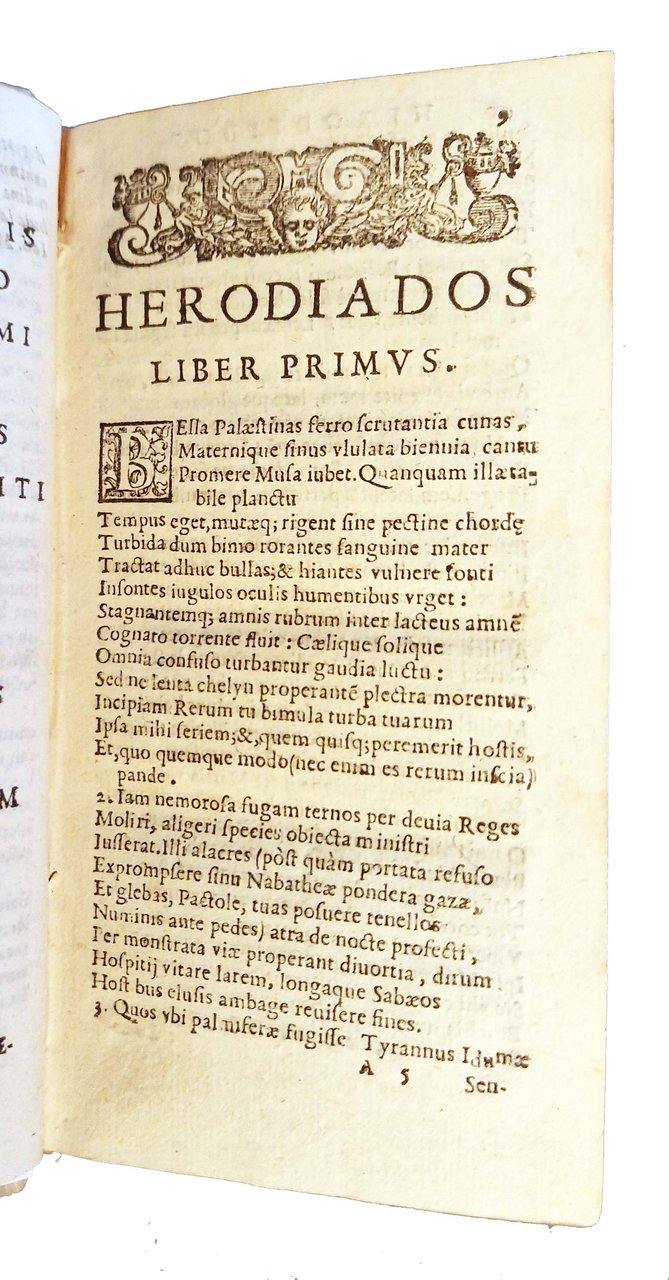 IS
O
MI
S
ITI
M
E-
9
HERODIADOS
LIBER PRIMVS.
BElla Palæstinas ferro scrutantia cunas,
Maternique sinus vlulata biennia, cantu
Promere Musa iubet. Quanquam illæta-
bile planctu
Tempus eget, mutæq; rigent sine pectine chordę
Turbida dum bimo rorantes sanguine mater
Tractat adhuc bullas; & hiantes vulnere fonti
Insontes iugulos oculis humentibus vrget:
Stagnantemq; amnis rubrum inter lacteus amnē
Cognato torrente fluit: Cælique solique
Omnia confuso turbantur gaudia luctu:
Sed ne lenta chelyn properantē plectra morentur,
Incipiam. Rerum tu bimula turba tuarum
Ipsa mihi seriem; &, quem quisq; peremerit hostis,
Et, quo quemque modo (nec enim es rerum inscia)
pande.
2. Iam nemorosa fugam ternos per deuia Reges
Moliri, aligeri species obiecta ministri
Iusserat. Illi alacres (pòst quàm portata refuso
Exprompsere sinu Nabatheæ pondera gazæ,
Et glebas, Pactole, tuas posuere tenellos
Numinis ante pedes) atra de nocte profecti,
Per monstrata viæ properant diuortia, dirum
Hospitij vitare larem, longaque Sabæos
Host bus elusis ambage reuisere fines.
3. Quos vbi palmiferæ fugisse Tyrannus Idumæ
A 5
Sen-